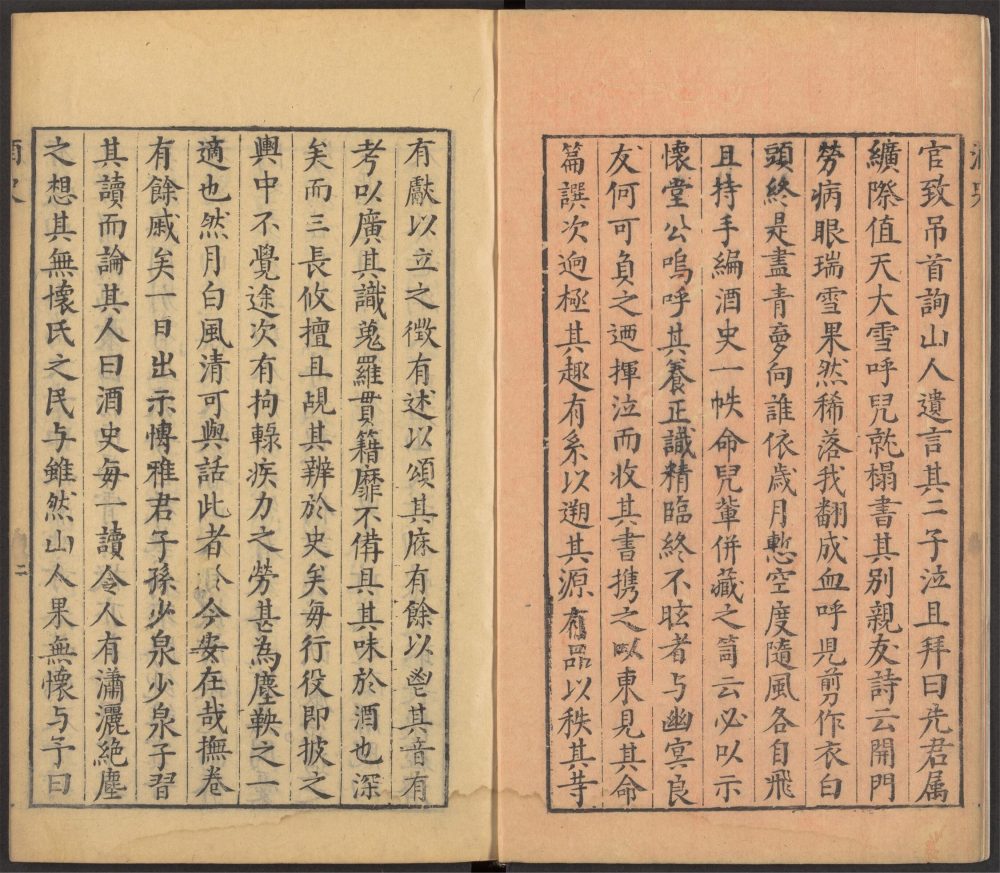 官致吊首詢山人遺言其二子泣且拜曰先君属
纊際值天大雪呼兒就榻書其別親友詩云開門
勞病眼瑞雪果然稀落我翻成血呼児剪作衣白
頭終是盡青夢向誰依歲月慙空度隨風各自飛
且持手編酒史一帙命兒輩併藏之笥云必以示
懷堂公嗚呼其養正識精臨終不眩者与幽冥良
友何可負之迺揮泣而收其書携之以東見其命
篇譔次逈極其趣有系以遡其源有品以秩其等
有獻以立之徵有述以頌其庥有餘以鬯其音有
考以廣其識蒐羅貫籍靡不備具其味於酒也深
矣而三長攸擅且覘其辨於史矣毎行役即披之
輿中不覺途次有拘轅疾力之勞甚為塵鞅之一
適也然月白風清可與話此者於今安在哉撫卷
有餘戚矣一日出示愽雅君子孫少泉少泉子習
其讀而論其人曰酒史每一讀令人有瀟灑絶塵
之想其無懷氏之民与雖然山人果無懷与予曰
酒史
二